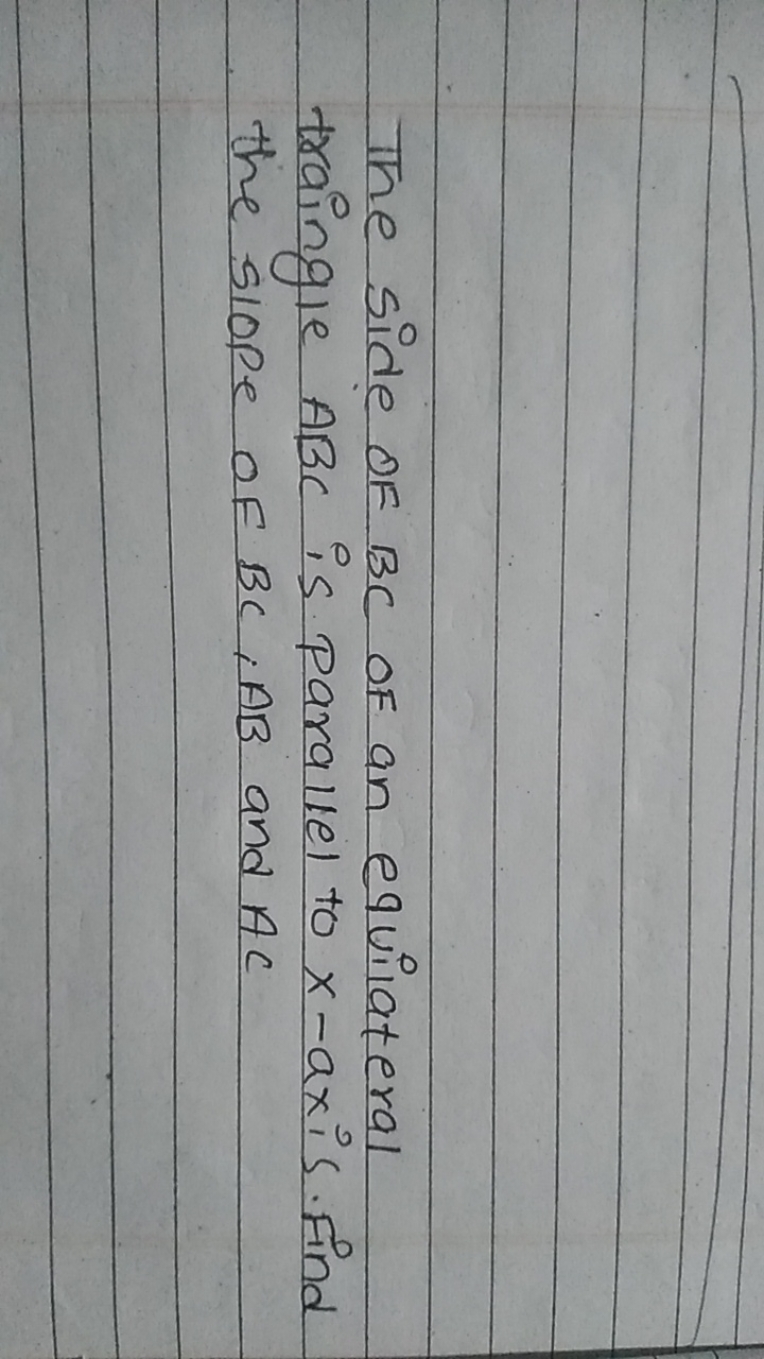 The side OF BC OF an equilateral
traingle ABC is parallel to x-axis. Find
the slope OF BC, AB and AC